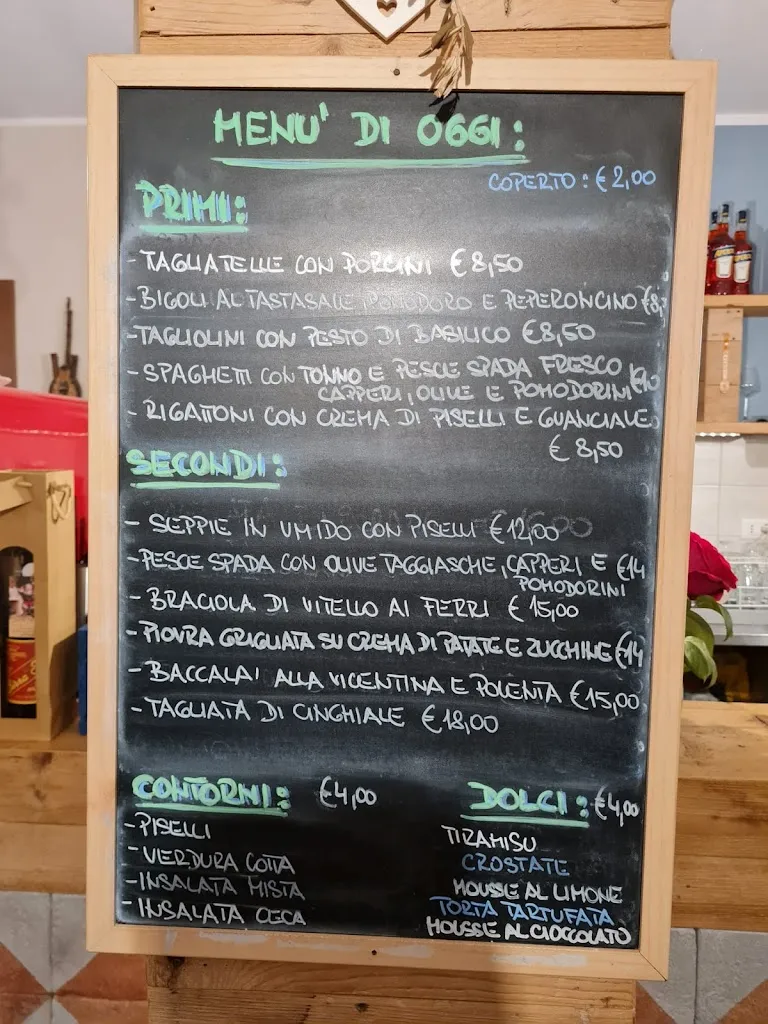 MENU' DI OGGI:
COPERTO: € 2,00
PRIMI:
- TAGLIATELLE CON PORCINI € 8,50
- BIGOLI AL TASTASALE POMODORO E PEPERONCINO €8,
- TAGLIOLINI CON PESTO DI BASILICO € 8,50
- SPAGHETTI CON TONNO E PESCE SPADA FRESCO €10
CAPPERI, OLIVE E POMODORINI
- RIGATTONI CON CREMA DI PISELLI E GUANCIALE
€ 8,50
SECONDI:
- SEPPIE IN UMIDO CON PISELLI € 12,00
- PESCE SPADA CON OLIVE TAGGIASCHE, CAPPERI E €14
POMODORINI
- BRACIOLA DI VITELLO AI FERRI € 15,00
- PIOVRA GRIGLIATA SU CREMA DI PATATE E ZUCCHINE €14
- BACCALA' ALLA VICENTINA E POLENTA € 15,00
- TAGLIATA DI CINGHIALE € 18,00
CONTORNI: €4,00
- PISELLI
- VERDURA COTTA
- INSALATA MISTA
- INSALATA CECA
DOLCI: €4,00
TIRAMISU
CROSTATE
MOUSSE AL LIMONE
TORTA TARTUFATA
MOUSSE AL CIOCCOLATO